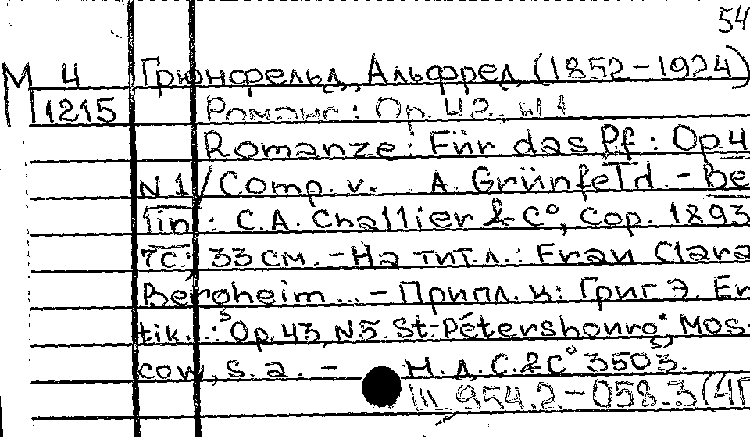 54
М 4 Грюнфельд, Альфред (1852-1924)
1215 Романс: Op. 42, N 1
Romanze: Für das Pf: Op 4
N 1 / Comp. v. A. Grünfeld. - Be
lin: C.A. Challier & C°, Cop. 1893
7с; 33 см. - На тит.л.: Frau Clara
Bergheim... - Припл. к: Григ Э. Er
tik...: Op. 43, N5 St-Pétersbourg, Mos-
cow, s.a. - Н.д. C.&C° 3503.
III 954.2-058.3(4Г